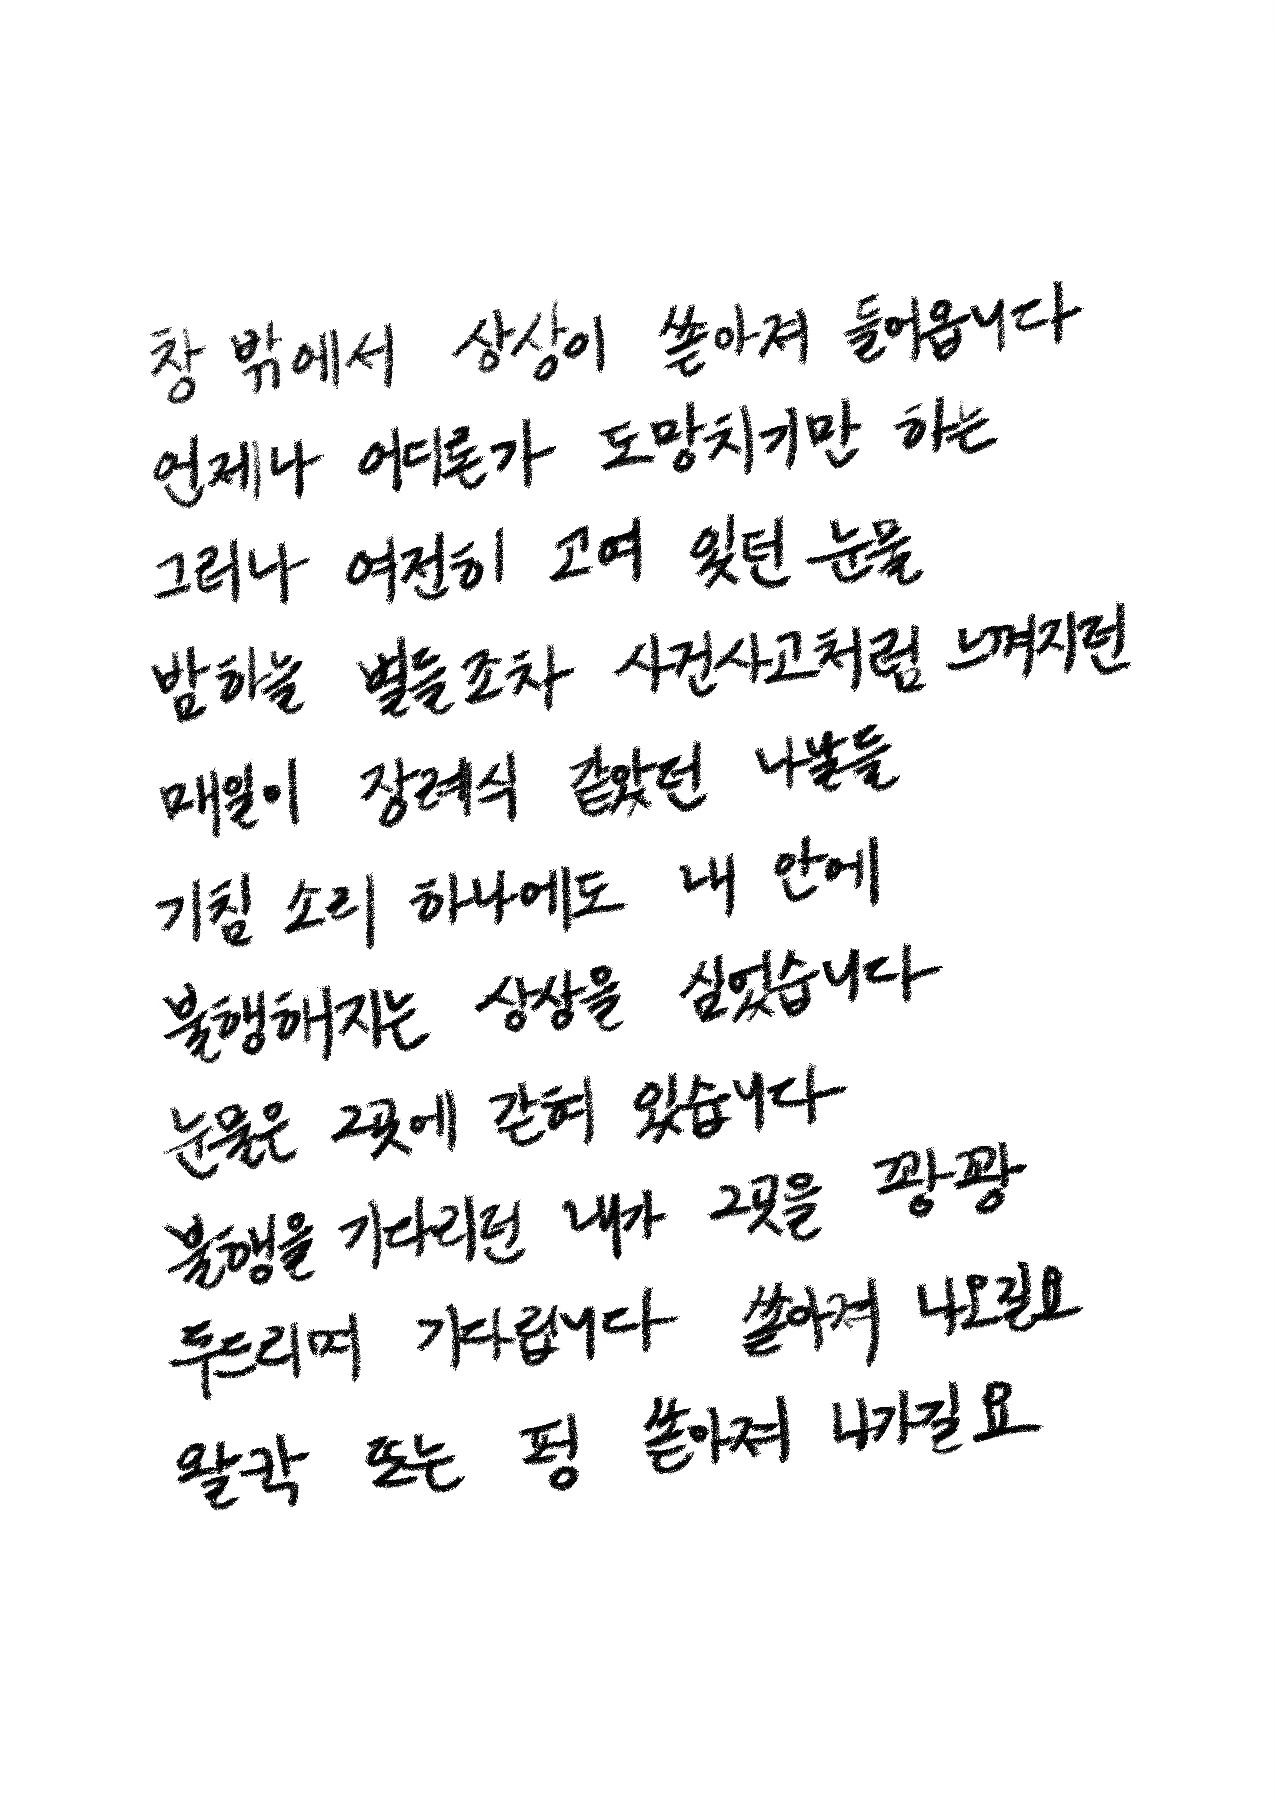 창 밖에서 상상이 쏟아져 들어옵니다
언제나 어디론가 도망치기만 하는
그러나 여전히 고여 있던 눈물
밤하늘 별들조차 사건사고처럼 느껴지던
매일이 장례식 같았던 나날들
기침 소리 하나에도 내 안에
불행해지는 상상을 심었습니다
눈물은 그곳에 갇혀 있습니다
불행을 기다리던 내가 그곳을 쾅쾅
두드리며 기다립니다 쏟아져 나오길요
왈칵 또는 펑 쏟아져 나가길요